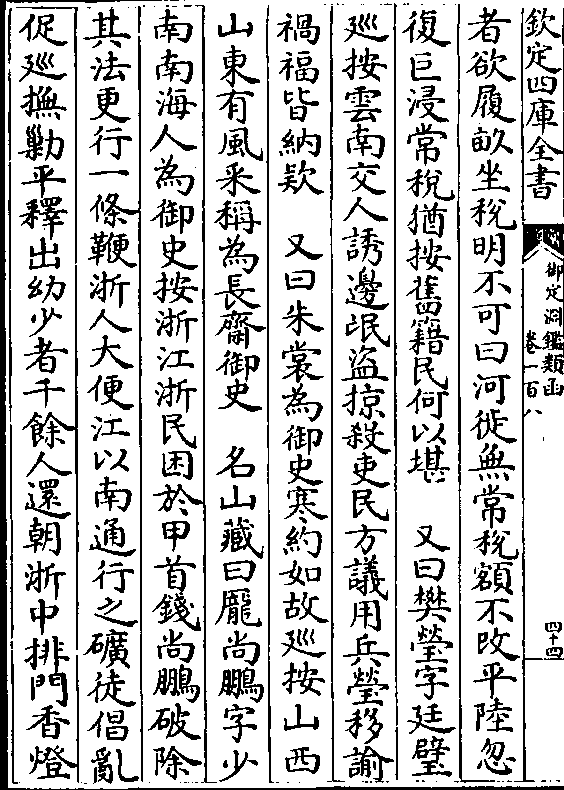 欽定四庫全書
御定淵鑑類函
卷一百八
四十四
者欲履畝坐稅明不可曰河徙無常稅額不改平陸忽
復巨浸常稅猶按舊籍民何以堪　又曰樊瑩字廷璧
廵按雲南交人誘邊氓盜掠殺吏民方議用兵瑩移諭
禍福皆納欵　又曰朱裳為御史寒約如故廵按山西
山東有風采稱為長齋御史　名山藏曰龎尚鵬字少
南南海人為御史按浙江浙民困於甲首錢尚鵬破除
其法更行一條鞭浙人大便江以南通行之礦徒倡亂
促廵撫勦平釋出幼少者千餘人還朝浙中排門香燈